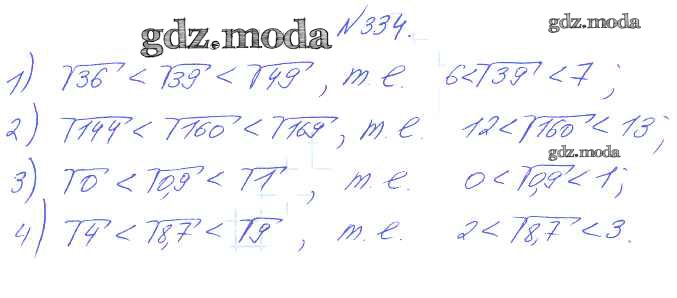 gdz.moda №334. gdz.moda
1) √36 < √39 < √49, т. е. 6<√39<7;
2) √144 < √160 < √169, т. е. 12<√160<13;
gdz.moda
3) √0 < √0,9 < √1, т. е. 0<√0,9<1;
4) √4 < √8,7 < √9, т. е. 2<√8,7<3.